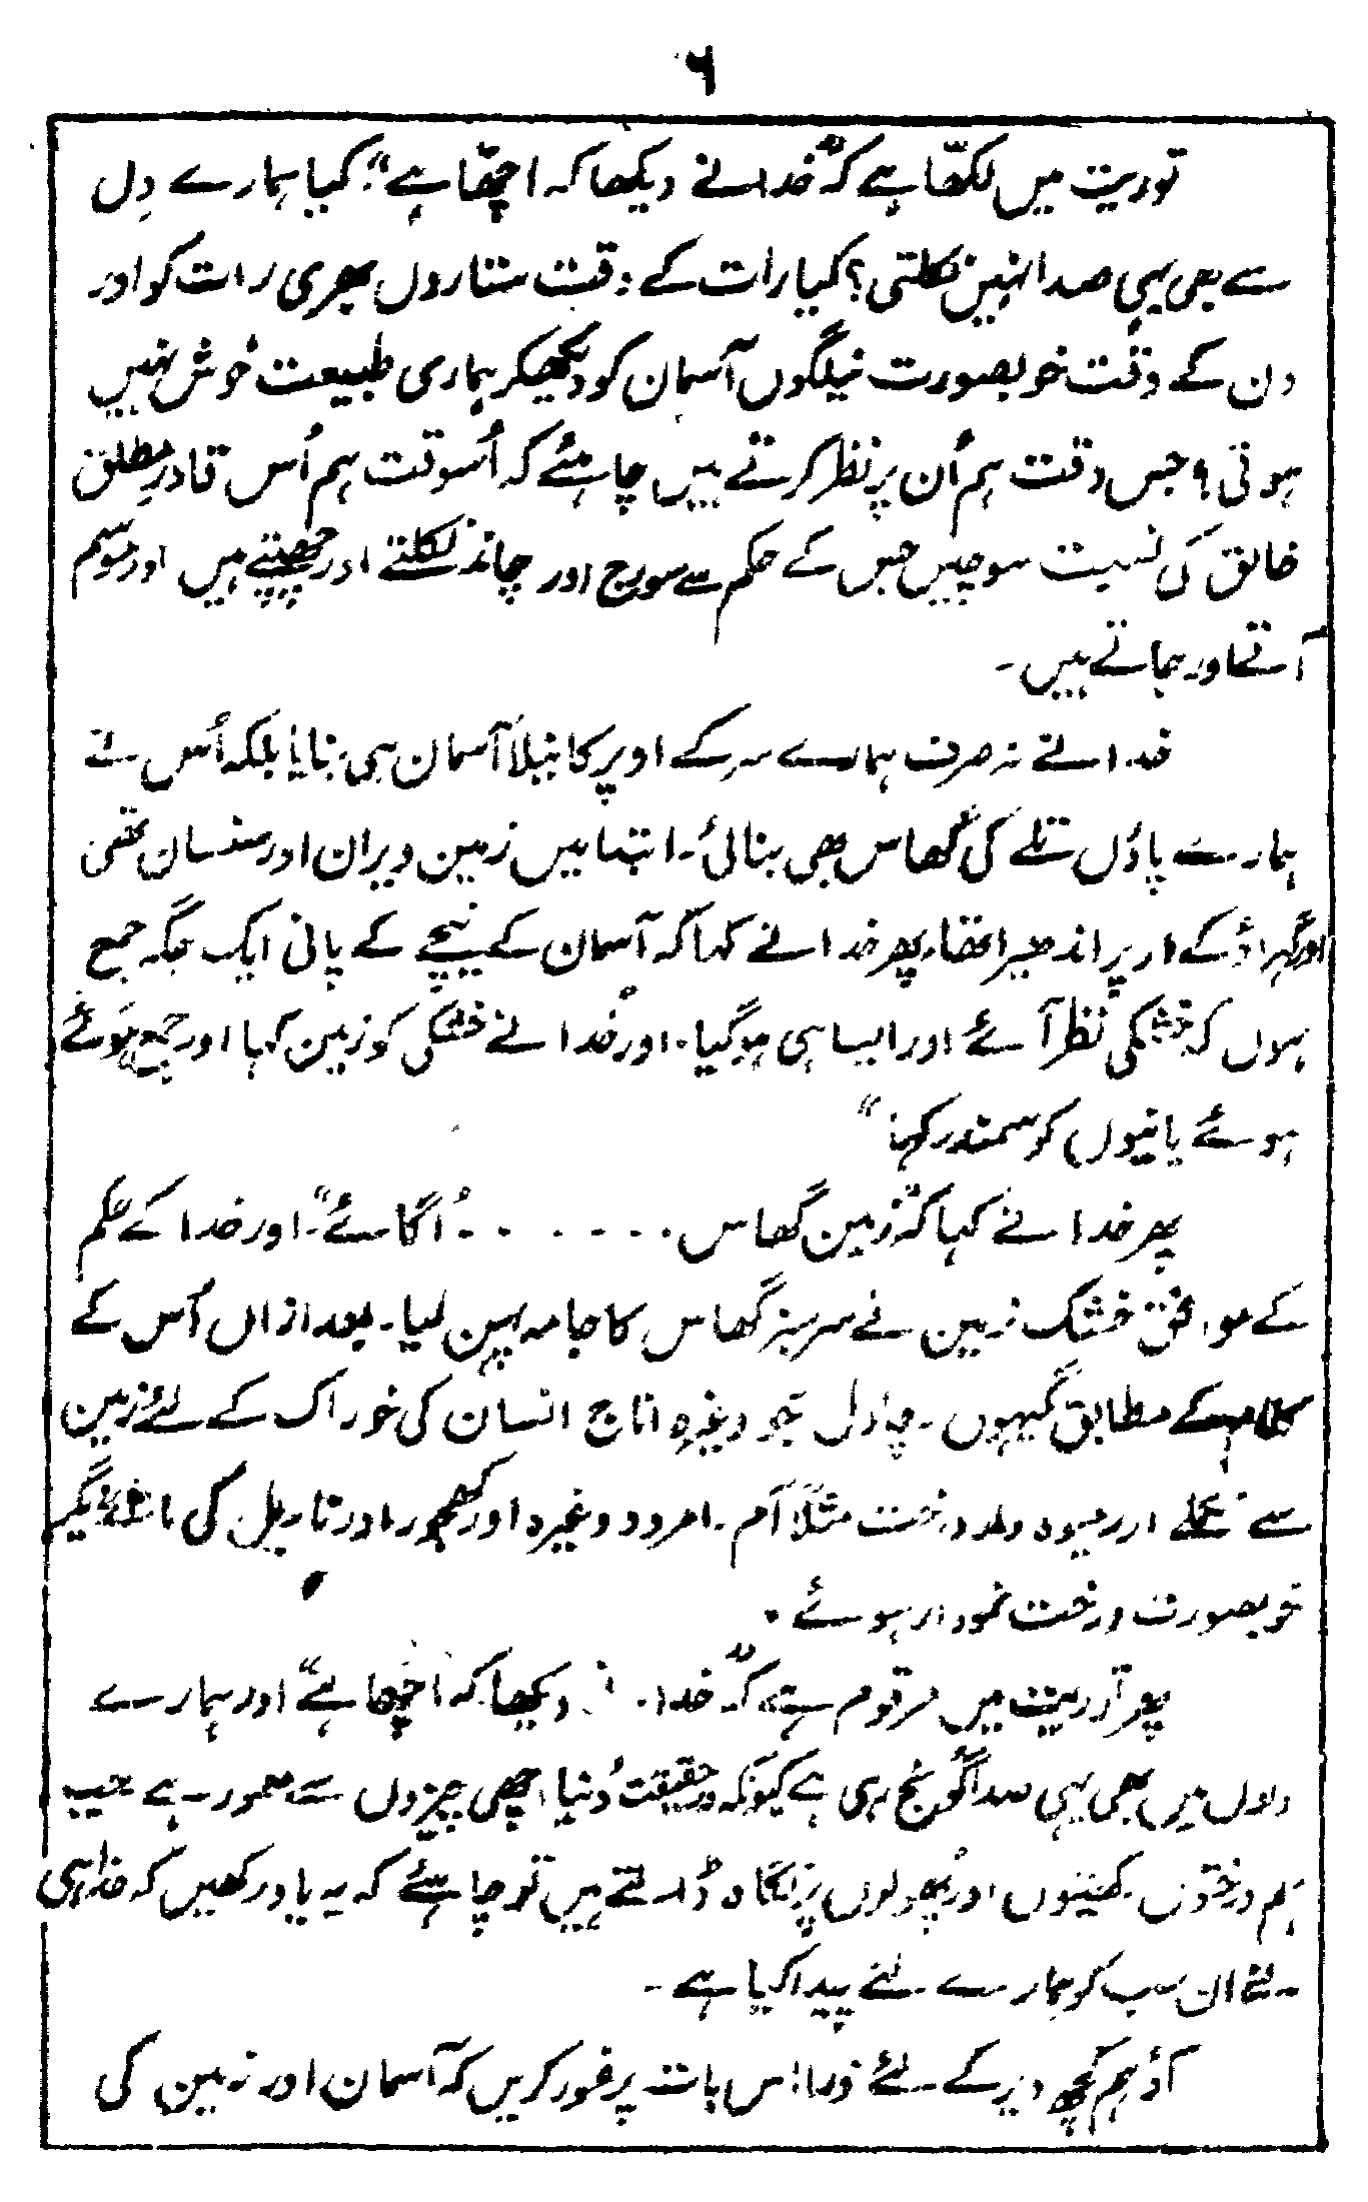 ۶
توریت میں لکھّا ہے کہ "خدا نے دیکھا کہ اچھّا ہے"۔ کیا ہمارے دِل
سے بھی یہی صدا نہیں نکلتی؟ کیا رات کے وقت ستاروں بھری رات کو اور
دن کے وقت خوبصورت نیلگوں آسمان کو دیکھکر ہماری طبیعت خوش نہیں
ہوتی؟ جس وقت ہم اُن پر نظر کرتے ہیں چاہئے کہ اُسوقت ہم اُس قادرِ مطلق
خالق کی نسبت سوچیں جس کے حکم سے سورج اور چاند نکلتے اور چھپتے ہیں اور موسم
آتے اور جاتے ہیں۔
خدا نے نہ صرف ہمارے سر کے اوپر کا نیلا آسمان ہی بنایا بلکہ اُس نے
ہمارے پاؤں تلے کی گھاس بھی بنائی۔ ابتدا میں زمین ویران اور سنسان تھی
اور گہراؤ کے اوپر اندھیرا تھا۔ پھر خدا نے کہا کہ آسمان کے نیچے کے پانی ایک جگہ جمع
ہوں کہ خشکی نظر آئے اور ایسا ہی ہو گیا۔ اور خُدا نے خشکی کو زمین کہا اور جمع ہوئے
ہوئے پانیوں کو سمندر کہا"
پھر خدا نے کہا کہ "زمین گھاس ۔ ۔ ۔ ۔ ۔ ۔ ۔ اُگائے"۔ اور خدا کے حکم
کے موافق خشک زمین نے سرسبز گھاس کا جامہ پہن لیا۔ بعد ازاں اُس کے
کلام کے مطابق گیہوں۔ چاول جَو وغیرہ اناج انسان کی خوراک کے لئے زمین
سے نکلے اور میوہ دار درخت مثلاً آم۔ امرود وغیرہ اور کھجور اور ناریل کی مانند دیگر
خوبصورت درخت نمودار ہوئے۔
پھر توریت میں مرقوم ہے کہ "خدا نے دیکھا کہ اچھا ہے" اور ہمارے
دلوں میں بھی یہی صدا گونج رہی ہے کیونکہ درحقیقت دُنیا اچھی چیزوں سے معمور ہے جب
ہم درختوں کھیتوں اور پھولوں پر نگاہ ڈالتے ہیں تو چاہئے کہ یہ یاد رکھیں کہ خدا ہی
نے ان سب کو ہمارے لئے پیدا کیا ہے۔
آؤ ہم کچھ دیر کے لئے ذرا اس بات پر غور کریں کہ آسمان اور زمین کی